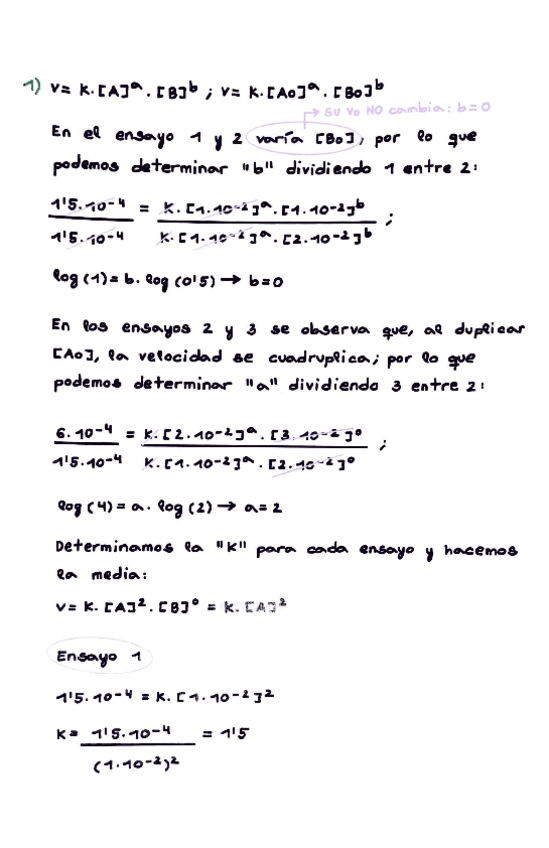 1) v= K.[A]ᵃ . [B]ᵇ ; v= K.[Ao]ᵃ . [Bo]ᵇ
→ su vo NO cambia: b=0
En el ensayo 1 y 2 varía [Bo], por lo que
podemos determinar "b" dividiendo 1 entre 2:
1'5.10-⁴ / 1'5.10-⁴ = K.[1.10-²]ᵃ.[1.10-²]ᵇ / K.[1.10-²]ᵃ.[2.10-²]ᵇ ;
log(1)= b. log(0'5) → b=0
En los ensayos 2 y 3 se observa que, al duplicar
[Ao], la velocidad se cuadruplica; por lo que
podemos determinar "a" dividiendo 3 entre 2:
6.10-⁴ / 1'5.10-⁴ = K.[2.10-²]ᵃ.[3.10-²]⁰ / K.[1.10-²]ᵃ.[2.10-²]⁰ ;
log(4)= a. log(2) → a=2
Determinamos la "K" para cada ensayo y hacemos
la media:
v= K.[A]².[B]⁰ = K.[A]²
Ensayo 1
1'5.10-⁴ = K.[1.10-²]²
K= 1'5.10-⁴ / (1.10-²)² = 1'5